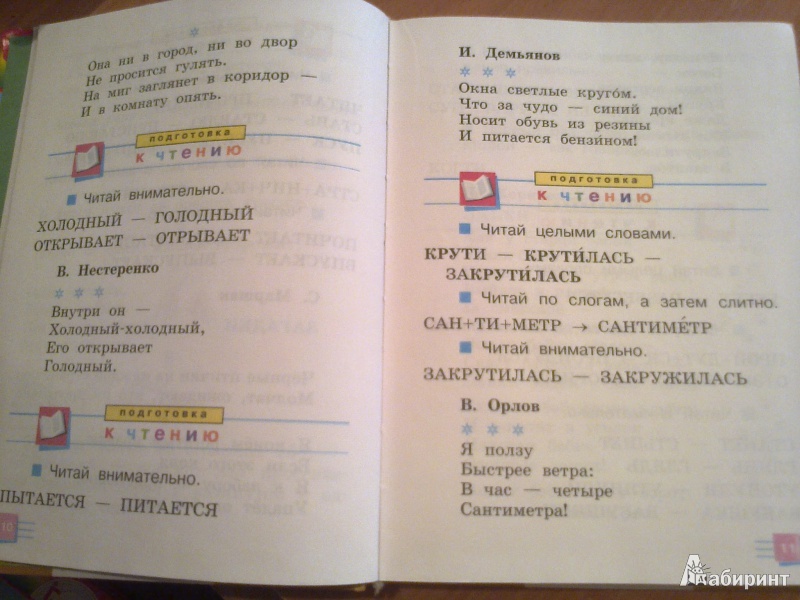 Она ни в город, ни во двор
Не просится гулять.
На миг заглянет в коридор —
И в комнату опять.
подготовка
к чтению
Читай внимательно.
ХОЛОДНЫЙ — ГОЛОДНЫЙ
ОТКРЫВАЕТ — ОТРЫВАЕТ
В. Нестеренко
Внутри он —
Холодный-холодный,
Его открывает
Голодный.
подготовка
к чтению
Читай внимательно.
ПЫТАЕТСЯ — ПИТАЕТСЯ
10
И. Демьянов
Окна светлые круго́м.
Что за чудо — синий дом!
Носит обувь из резины
И питается бензи́ном!
подготовка
к чтению
Читай целыми словами.
КРУТИ — КРУТИ́ЛАСЬ —
ЗАКРУТИ́ЛАСЬ
Читай по слогам, а затем слитно.
САН+ТИ+МЕТР → САНТИМЕ́ТР
Читай внимательно.
ЗАКРУТИЛАСЬ — ЗАКРУЖИЛАСЬ
В. Орлов
Я ползу
Быстрее ветра:
В час — четыре
Сантиметра!
11
Лабиринт